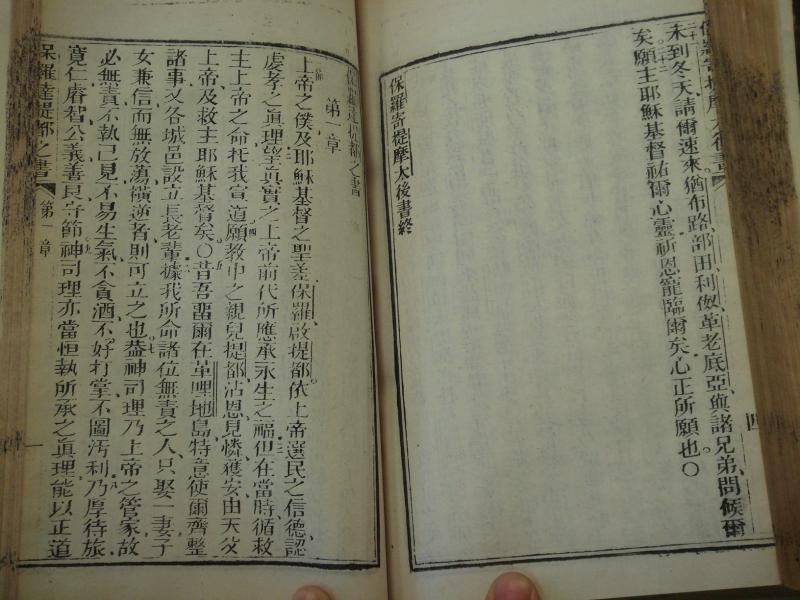 保羅寄提摩太後書
四
未到冬天請爾速來猶布路部田利奴革老底亞與諸兄弟問候爾
矣願主耶穌基督祐爾心靈祈恩寵臨爾矣心正所願也〇
保羅寄提摩太後書終
保羅達提都之書
第一章
上帝之僕及耶穌基督之聖差保羅啟提都依上帝選民之信德認
虔孝之眞理望眞實之上帝前代所應承永生之福但在當時循救
主上帝之命托我宣道願教中之親兒提都沾恩見憐獲安由天父
上帝及救主耶穌基督矣〇昔吾畱爾在革哩地島特意使爾齊整
諸事又各城邑設立長老輩據我所命諸位無責之人只娶一妻子
女兼信而無放蕩橫逆者則可立之也葢神司理乃上帝之管家故
必無責不執己見不易生氣不貪酒不好打掌不圖汚利乃厚待旅
寬仁睿智公義善良守節神司理亦當恒執所承之眞理能以正道
保羅達提都之書
第一章
一